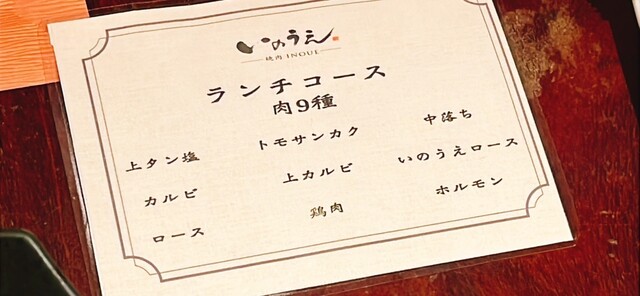 いのうえ
焼肉 INOUE
ランチコース
肉9種
上タン塩 トモサンカク 中落ち
カルビ 上カルビ いのうえロース
ロース 鶏肉 ホルモン